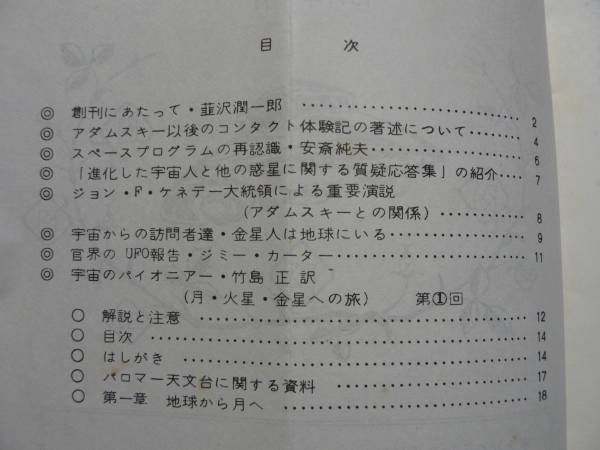 目 次
◎ 創刊にあたって・韮沢潤一郎 ・・・・・・・・・・・・・・・・・・・・ 2
◎ アダムスキー以後のコンタクト体験記の著述について・・・・・・ 4
◎ スペースプログラムの再認識・安斎純夫・・・・・・・・・・・・・・ 6
◎ 「進化した宇宙人と他の惑星に関する質疑応答集」の紹介・・・・ 7
◎ ジョン・F・ケネデー大統領による重要演説
(アダムスキーとの関係)・・・・・・・・・・・ 8
◎ 宇宙からの訪問者達・金星人は地球にいる・・・・・・・・・・・・・ 9
◎ 官界のUFO報告・ジミー・カーター・・・・・・・・・・・・・・・・ 11
◎ 宇宙のパイオニアー・竹島 正 訳
(月・火星・金星への旅) 第①回
○ 解説と注意 ・・・・・・・・・・・・・・・・・・・・・・・・・・ 12
○ 目次 ・・・・・・・・・・・・・・・・・・・・・・・・・・・・・ 14
○ はしがき ・・・・・・・・・・・・・・・・・・・・・・・・・・・ 14
○ パロマー天文台に関する資料 ・・・・・・・・・・・・・・・・・・ 17
○ 第一章 地球から月へ ・・・・・・・・・・・・・・・・・・・・・ 18